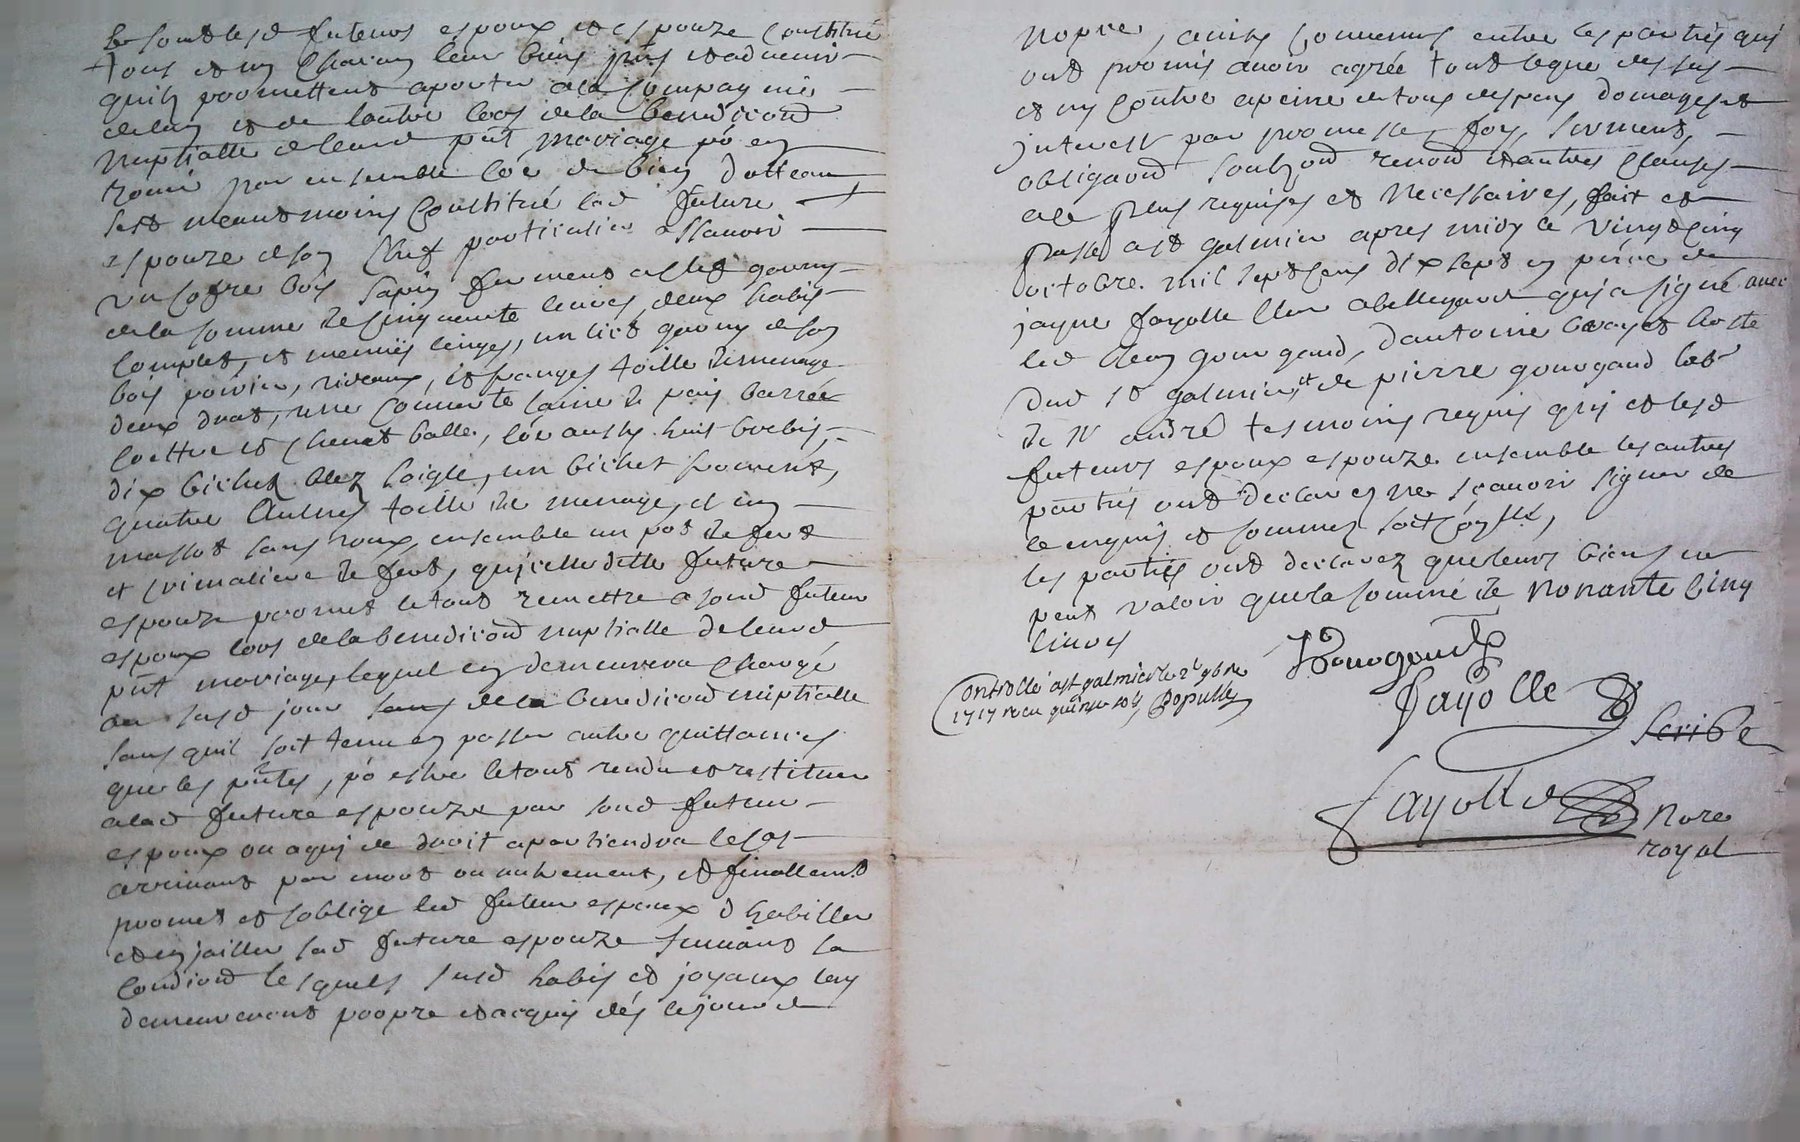 se sont lesd futeurs espoux et espouze constitué
tous et un chacun leur biens pnts et advenir
quils promettent aporter a la compagnie
de lun et de lautre lors de la benediond
nuptialle de leurd pnt mariage po en
par ensemble coe de bien dotteau
sest neantmoins constitué lad future
espouze de son chef particulier a scavoir
un cofre bois sapin fermant a clef garny
de la somme de cinquante livres, deux habis
complet, et menus linges, un lict garny de son
bois, rideaux, et franges toille de menage
deux draps, une couverte laine de pais barrée
coettre et chevet balle, coe aussy huit brebis,
dix bichet bled soigle, un bichet froment,
quatre aulnes toille de menage, et un
sans roux, ensemble un pot de fert
et crimaliere de fert, qu'icelle ditte future
espouze promet le tout remettre a sond futeur
espoux lors de la benediond nuptialle de leurd
pnt mariage, lequel en demeurera chargé
au susd jour de la benediond nuptialle
sans quil soit tenu en passer autre quittances
que les pntes, po estre le tout rendu et restitué
a lad future espouze par sond futeur
espoux ou a qui de droit apartiendra le cas
arrivant par mort ou autrement, et finallemt
promet et soblige led futeur espoux d habiller
et enjailler sad future espouze suivant sa
condiond lesquels susd habis et joyaux luy
demeureront propre et acquis dés le jour de
nopces, ainsy convenus entre les parties qui
ont promis avoir agrée tout ce que dessus
et ny contre a peine de tous despens domages et
interest par promesse, foy, serment,
obligaond soubzond renond et autres clauses
a ce plus requises et necessaires, fait et
passé a st galmier apres midy le vingt cinq
octobre mil sept cens dix sept en pnce de
jaque fayolle clerc abellegard qui a signé avec
led gourgaud, dantoine hoste
dud st galmier et de pierre gourgaud lab
de st andré tesmoins requis qui et lesd
futeurs espoux espouze ensemble les autres
parties ont declaré ne sçavoir signer de
ce enquis et sommez
les parties ont declarez que leurs biens ne
peut valoir que la somme de nonante cinq
livres
Controllé a st galmier le 2e 9bre
1717 recu quinze sols Populle
Fayolle
Scribe
Fayolle Nore
royal